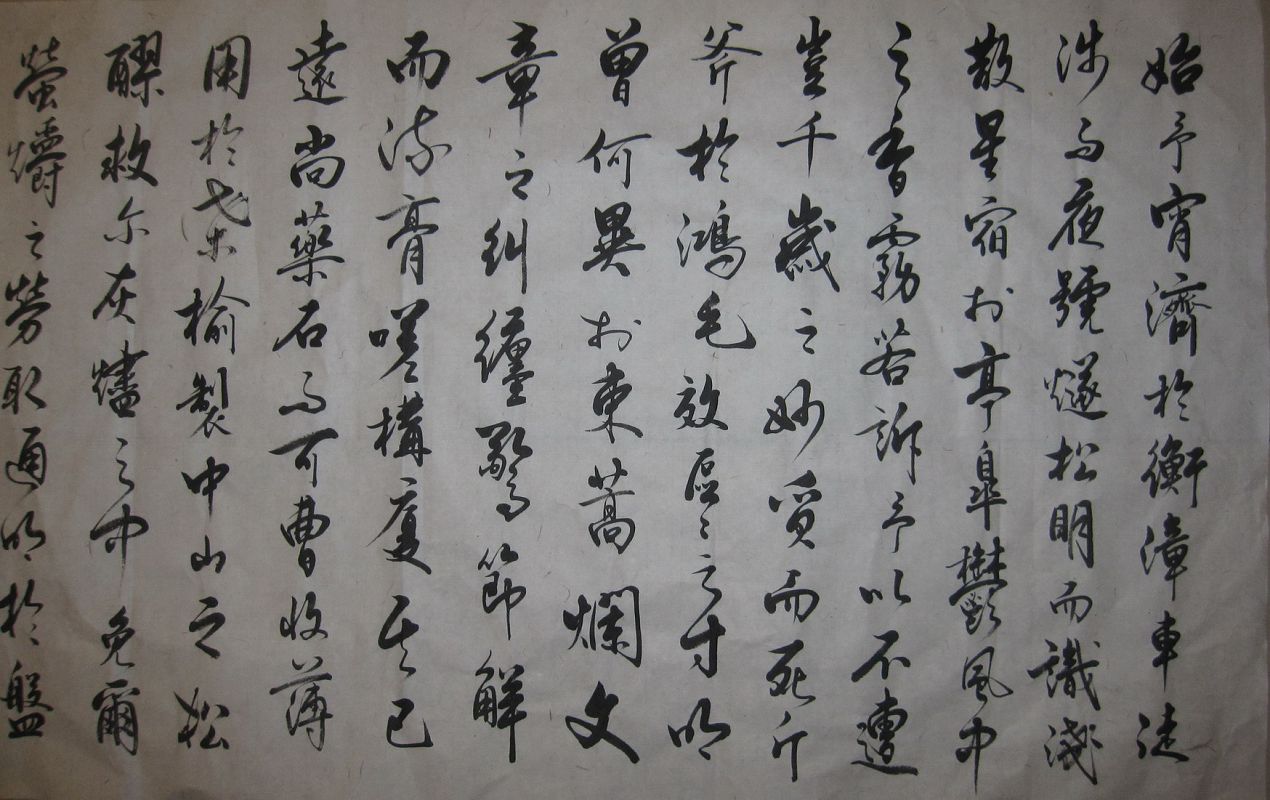 始予宵濟於衡漳車徒
涉而夜號燧松明而識淺
散星宿於亭皋鬱風中
之香霧若訴予以不遭
豈千歲之妙質而死斤
斧於鴻毛效區區之寸明
曾何異於束蒿爛文
章之糾纆驚節解
而流膏嗟構廈其已
遠尚藥石而可曹收薄
用於桑榆製中山之松
醪救尔灰燼之中免爾
螢爝之勞取通明於盤